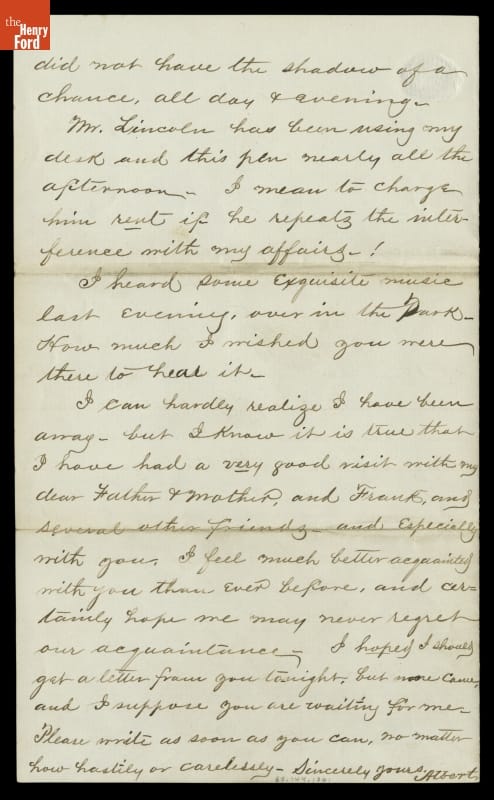 the
Henry
Ford
did not have the shadow of a
chance, all day & evening.
Mr. Lincoln has been using my
desk and this pen nearly all the
afternoon. I mean to charge
him rent if he repeats the inter-
ference with my affairs.!
I heard some exquisite music
last evening, over in the Park.
How much I wished you were
there to hear it.
I can hardly realize I have been
away. but I know it is true that
I have had a very good visit with my
dear Father & Mother, and Frank, and
several other friends. and especially
with you. I feel much better acquainted
with you than ever before, and cer-
tainly hope we may never regret
our acquaintance. I hoped I should
get a letter from you to-night. but none came,
and I suppose you are waiting for me.
Please write as soon as you can, no matter
how hastily or carelessly. Sincerely yours, Albert.